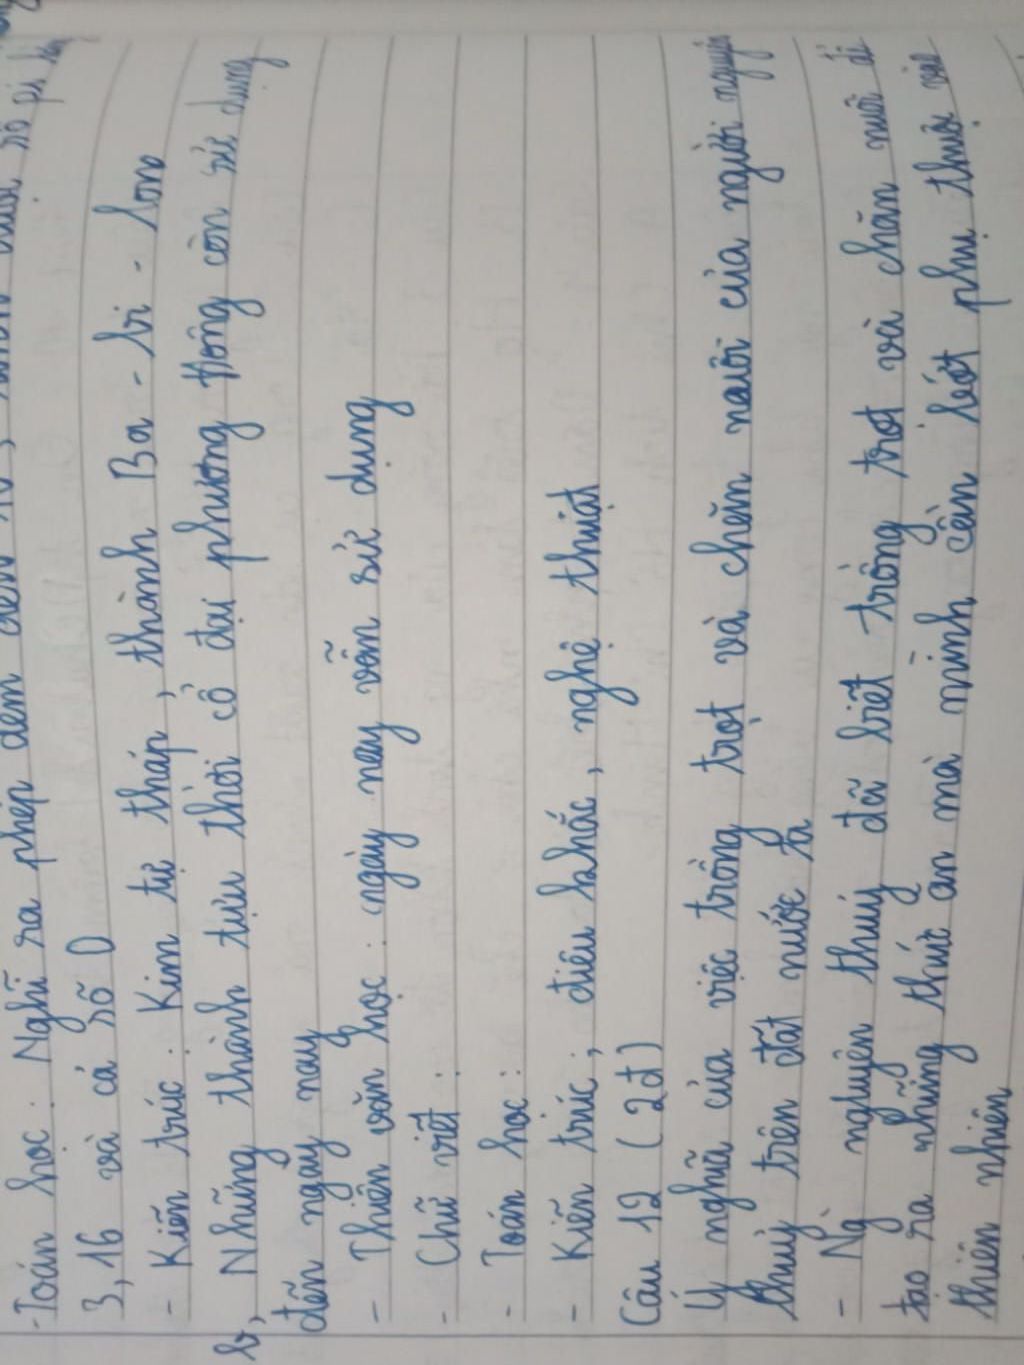 - Toán học: Nghĩ ra phép đếm đến 10, số pi
3,16 và cả số 0
- Kiến trúc: Kim tự tháp, thành Ba - bi - lon
b, Những thành tựu thời cổ đại phương Đông còn sử dụng
đến ngày nay
- Thiên văn học: ngày nay vẫn sử dụng
- Chữ viết:
- Toán học:
- Kiến trúc; điêu khắc, nghệ thuật
Câu 12 (2đ)
Ý nghĩa của việc trồng trọt và chăn nuôi của người nguyên
thuỷ trên đất nước ta
- Ng nguyên thuỷ đã biết trồng trọt và chăn nuôi để
tạo ra những thức ăn mà mình cần bớt phụ thuộc vào
thiên nhiên